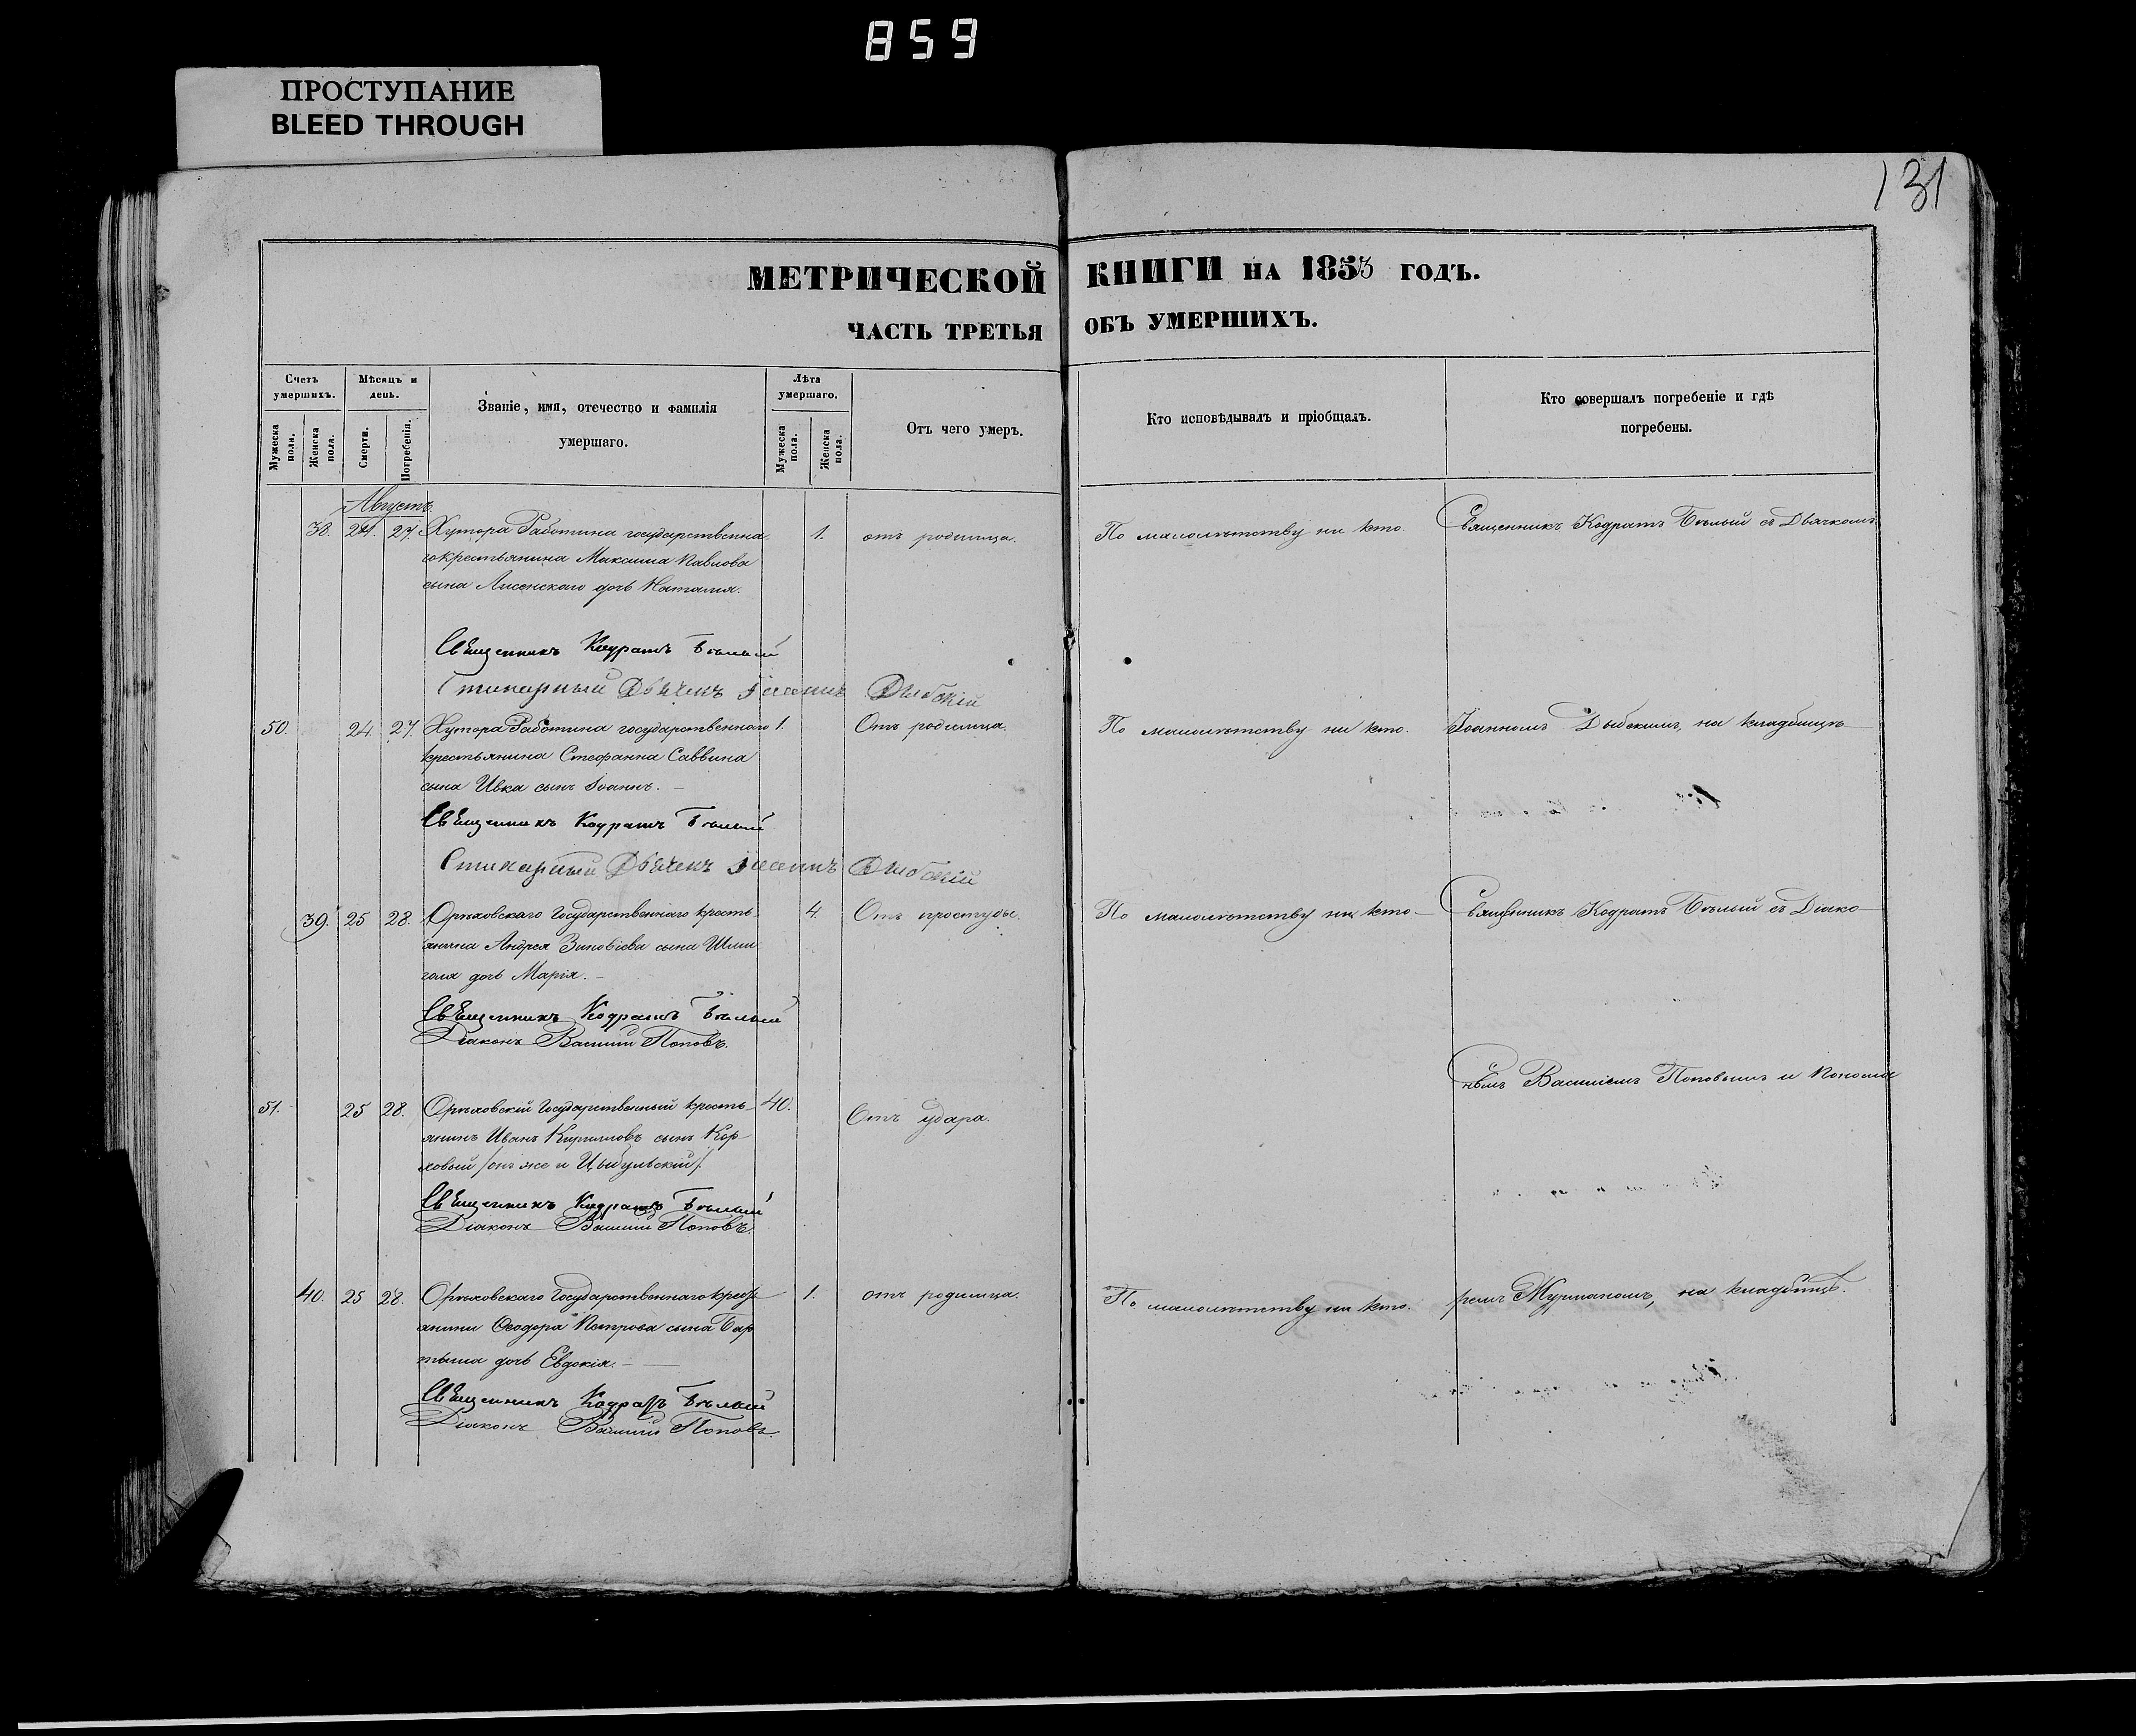 859
ПРОСТУПАНИЕ
BLEED THROUGH
131
МЕТРИЧЕСКОЙ КНИГИ НА 1853 ГОДЪ.
ЧАСТЬ ТРЕТЬЯ ОБЪ УМЕРШИХЪ.
Счетъ умершихъ.
Мужеска поли.
Женска пола.
Мѣсяцъ и день.
Смерти.
Погребенія.
Званіе, имя, отечество и фамилія
умершаго.
Лѣта умершаго.
Мужеска пола.
Женска пола.
Отъ чего умеръ.
Кто исповѣдывалъ и пріобщалъ.
Кто совершалъ погребеніе и гдѣ
погребены.
Августъ.
38. 24. 27. Хутора Работина государственна 1. отъ родимца. По малолѣтству ни кто. Священникъ Кодратъ Бѣлый съ Дьячкомъ
гокрестьянина Максима Павлова
сына Лисенскаго дочь Наталия.
Священникъ Кодратъ Бѣлый
Стихарный Дьячекъ Іоаннъ Дыбскій
50. 24. 27. Хутора Работина государственнаго 1. Отъ родимца. По малолѣтству ни кто. Іоанномъ Дыбскимъ, на кладбищѣ
крестьянина Стефанна Саввина
сына Ивка сынъ Іоаннъ.
Священникъ Кодратъ Бѣлый
Стихарный Дьячекъ Іоаннъ Дыбскій
39. 25 28. Орѣховскаго Государственнаго кресть- 4. Отъ простуды. По малолѣтству ни кто- Священникъ Кодратъ Бѣлый съ Діако-
янина Андрея Зиновіева сына Шми
голя дочь Марія.
Священникъ Кодратъ Бѣлый
Діаконъ Василій Поповъ.
номъ Василіемъ Поповымъ и Понома
51. 25 28. Орѣховскій Государственный кресть- 40. Отъ удара.
янинъ Иванъ Кирилловъ сынъ Кор-
ховый /онъ же и Цыбульскій/.
Священникъ Кодратъ Бѣлый
Діаконъ Василій Поповъ.
40. 25 28. Орѣховскаго Государственнаго крест 1. отъ родимца. По малолѣтству ни кто. ремъ Журманомъ, на кладбищѣ.
янина Ѳеодора Петрова сына Бар
тыша дочь Евдокія.
Священникъ Кодратъ Бѣлый
Діаконъ Василій Поповъ.